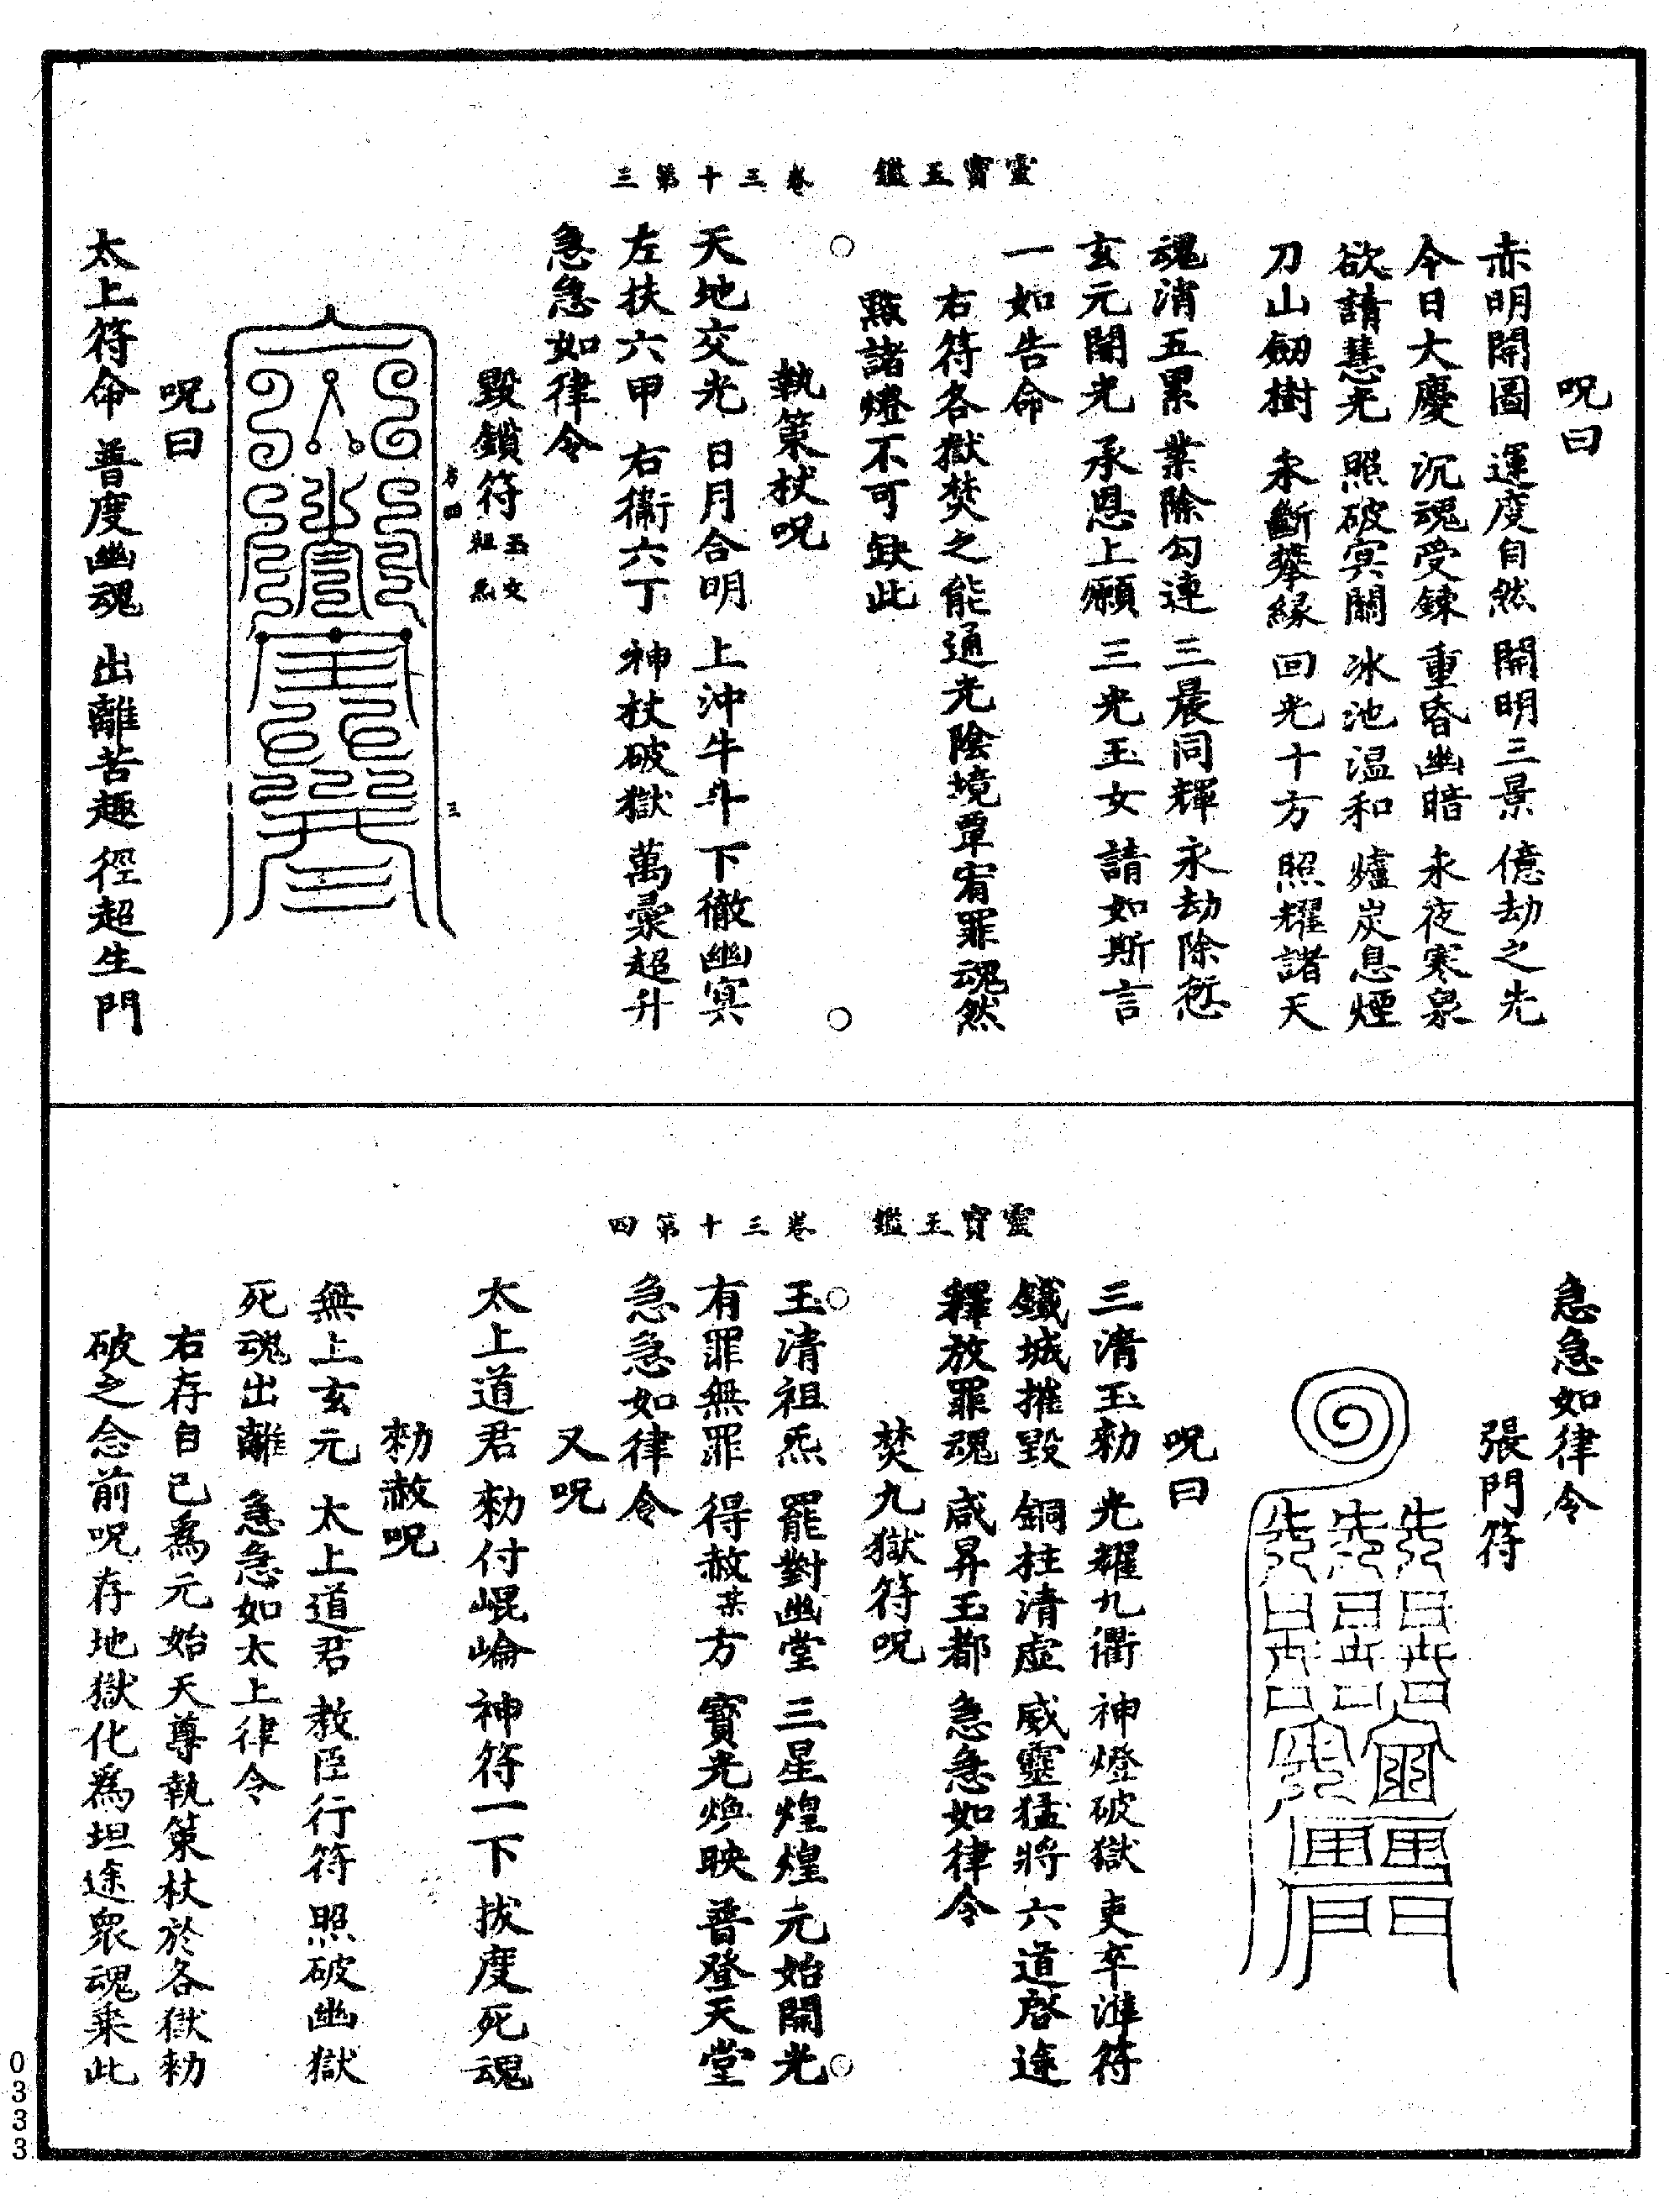 呪曰
赤明開圖 運度自然 開明三景 億劫之先
今日大慶 沉魂受鍊 重昏幽暗 永夜寒泉
欲請慧光 照破冥關 冰池温和 爐炭息煙
刀山劒樹 永斷攀緣 回光十方 照耀諸天
魂消五累 業除勾連 三晨同輝 永劫除愆
玄元開光 承恩上願 三光玉女 請如斯言
一如告命
右符各獄焚之能通光陰境覃宥罪魂然
點諸燈不可缺此
靈寶玉鑑 卷三十 第三
執策杖呪
天地交光 日月合明 上沖牛斗 下徹幽冥
左扶六甲 右衛六丁 神杖破獄 萬彙超升
急急如律令
毀鎖符 玉文
祖炁
呪曰
太上符命 普度幽魂 出離苦趣 徑超生門
急急如律令
張門符
呪曰
三清玉勑 光耀九衢 神燈破獄 吏卒準符
鐵城摧毀 銅柱清虛 威靈猛將 六道啓途
釋放罪魂 咸昇玉都 急急如律令
焚九獄符呪
靈寶玉鑑 卷三十 第四
玉清祖炁 罷對幽堂 三星煌煌 元始開光
有罪無罪 得赦某方 寳光煥映 普登天堂
急急如律令
又呪
太上道君 勑付崐崘 神符一下 拔度死魂
勑赦呪
無上玄元 太上道君 教臣行符 照破幽獄
死魂出離 急急如太上律令
右存自己爲元始天尊執策杖於各獄勑
破之念前呪存地獄化爲坦途衆魂乘此
0333